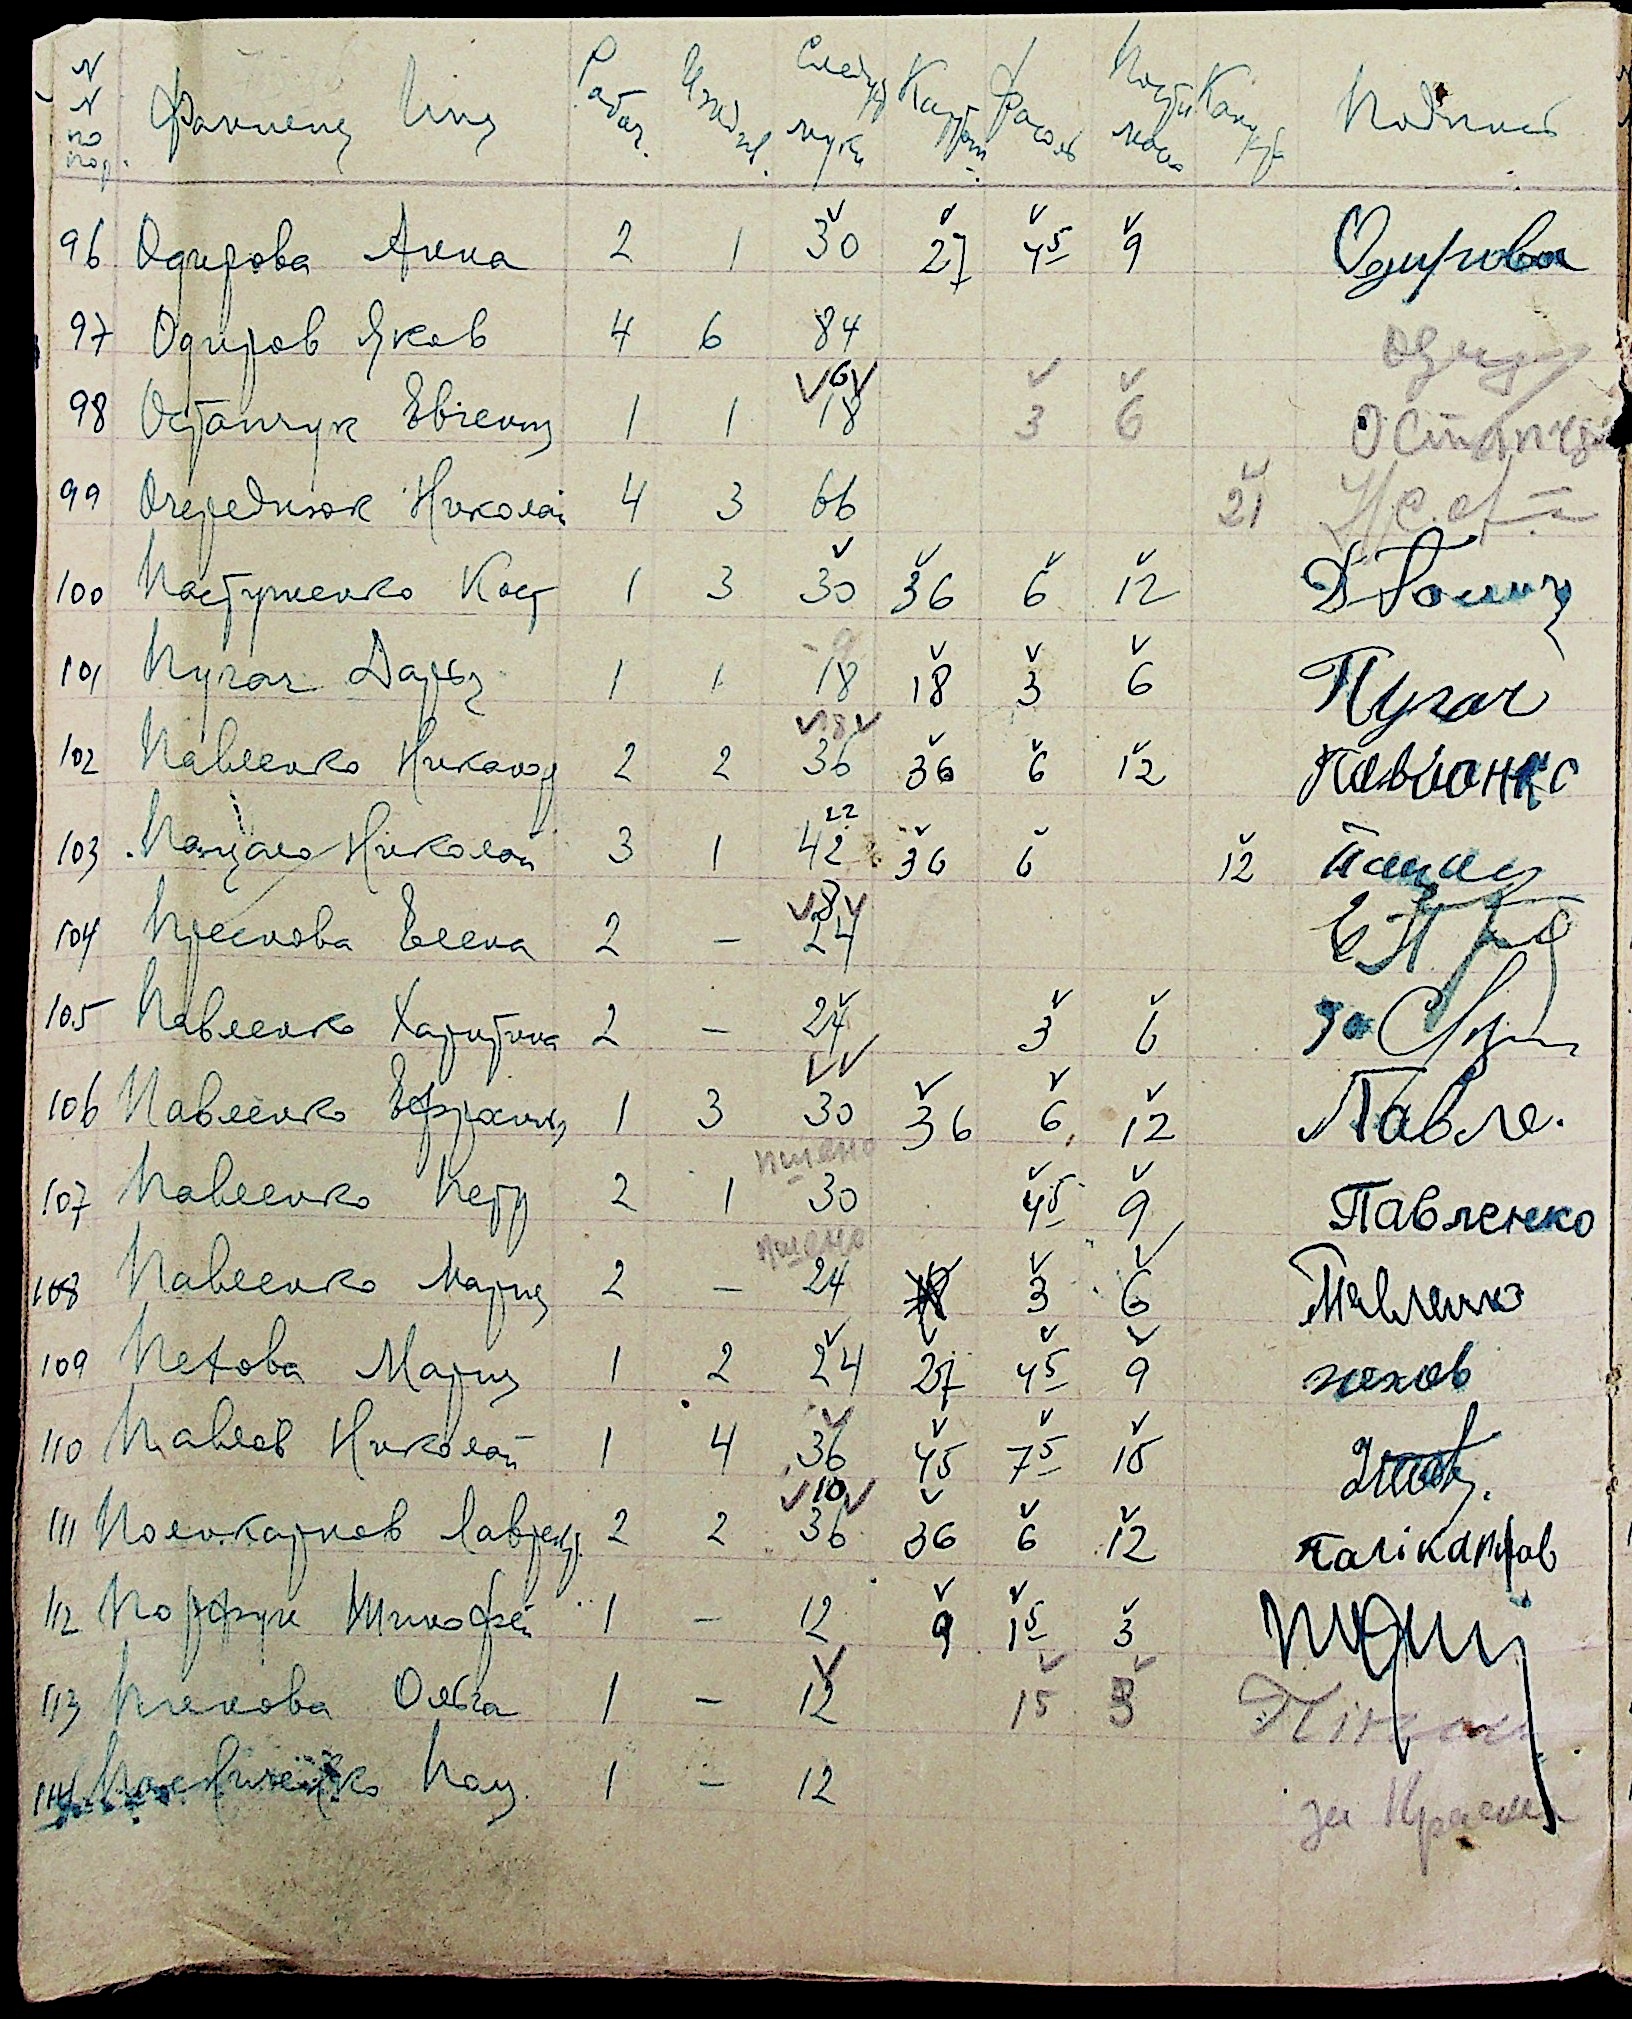 N N по пор. Фамилия Имя Рабоч. Ижд ив. Следует муки Картоф. Фасоль Подпись
96 Одирова Анна 2 1 30 27 4 5 9 Одирова
97 Одиров Яков 4 6 84
6
98 Остапчук Евгения 1 1 18 3 6 Остапчук
99 Очереднюк Николай 4 3 66 21
100 Пастушенко Кост 1 3 30 36 6 12
101 Пугач Дарья 1 1 18 18 3 6 Пугач
18
102 Павленко Никанор 2 2 36 36 6 12 Павленко
22
103 Николай 3 1 42 36 6 12
8
104 Преснова Елена 2 – 24
105 Павленко Харитина 2 – 24 3 6 за
106 Павленко 1 3 30 36 6 12 Павле.
пшено
107 Павленко Петр 2 1 30 4 5 9 Павленко
пшено
108 Павленко Мария 2 – 24 3 6 Павленко
109 Пехова Мария 1 2 24 27 4 5 9 пехов
110 Павлов Николай 1 4 36 45 7 5 15
10
111 Поликарпов Лаврент. 2 2 36 36 6 12 Полікарпов
112 Тимофей 1 – 12 9 1 5 3
113 Ольга 1 – 12 15 3
114 1 – 12 за